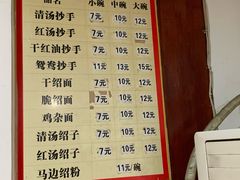 品名 小碗 中碗 大碗
清汤抄手 7元 10元 12元
红汤抄手 7元 10元 12元
干红油抄手 7元 10元 12元
鸳鸯抄手 11元 13元 15元
干绍面 7元 10元 12元
脆绍面 7元 10元 12元
鸡杂面 7元 10元 12元
清汤绍子 7元 10元 12元
红汤绍子 7元 10元 12元
马边绍粉 11元/碗